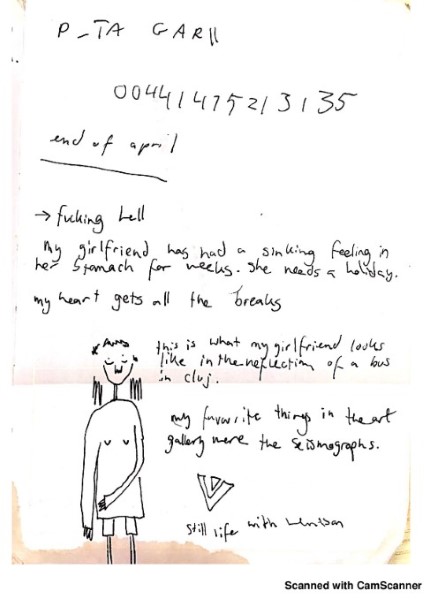 P_TA GARII
00441475213135
end of april
→ fucking hell
my girlfriend has had a sinking feeling in
her stomach for weeks. she needs a holiday.
my heart gets all the breaks
this is what my girlfriend looks
like in the reflection of a bus
in cluj.
my favourite things in the art
gallery were the seismographs.
still life with
Scanned with CamScanner